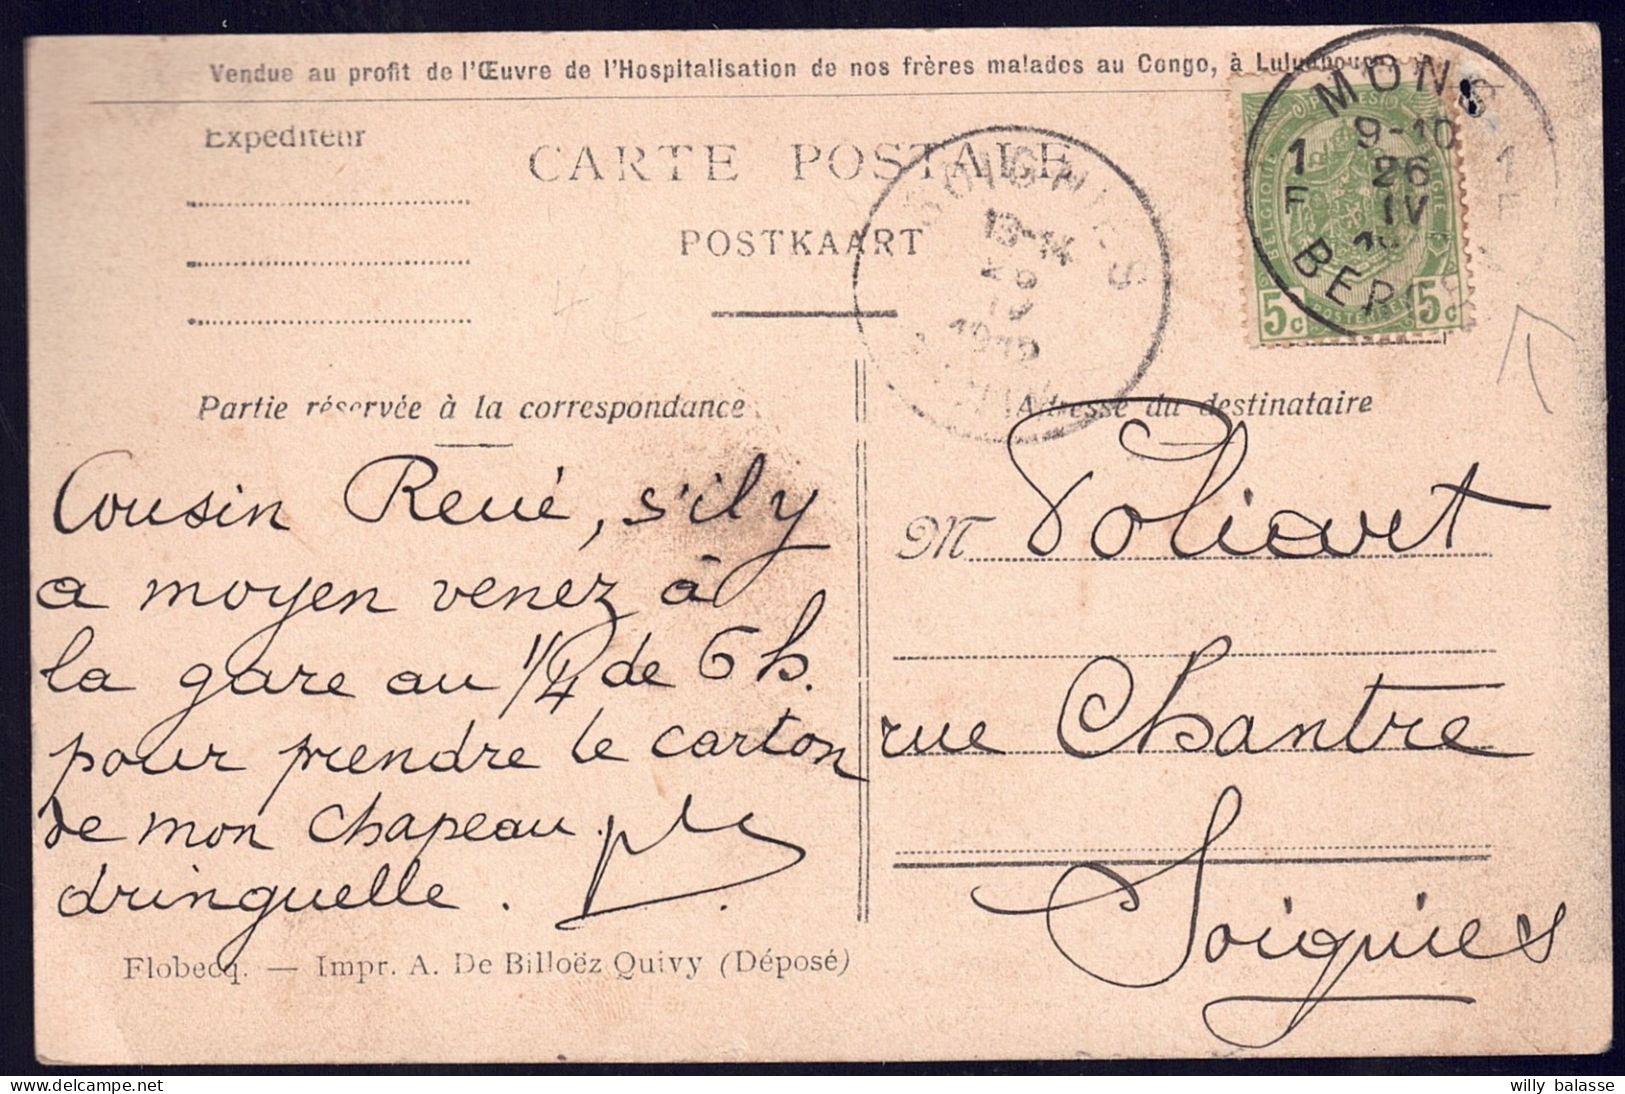 Vendue au profit de l'Œuvre de l'Hospitalisation de nos frères malades au Congo, à Luluabourg
Expéditeur
CARTE POSTALE
POSTKAART
SOIGNIES
13-14
MONS
9-10
1 26 1
F IV F
BERGEN
BELGIQUE
BELGIË
5c 5c
Partie réservée à la correspondance
Adresse du destinataire
Cousin René, s'il y
a moyen venez à
la gare au 1/4 de 6 h.
pour prendre le carton
de mon chapeau.
dringuelle.
M Poliart
rue Chantre
Soignies
Flobecq. — Impr. A. De Billoëz Quivy (Déposé)
willy balasse